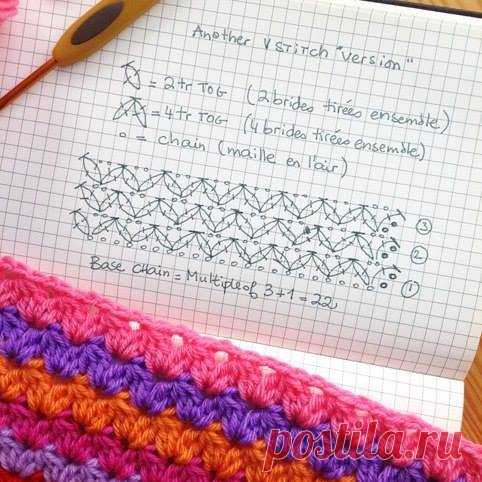 Another V Stitch "Version"
= 2 tr TOG (2 brides tirées ensemble)
= 4 tr TOG (4 brides tirées ensemble)
o = chain (maille en l'air)
3
2
1
Base chain = Multiple of 3 + 1 = 22
postila.ru